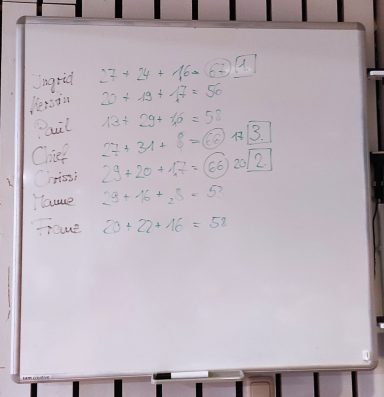 Ingrid 27 + 24 + 16 = 67 1.
Kerstin 20 + 19 + 17 = 56
Paul 13 + 29 + 16 = 58
Chief 27 + 31 + 8 = 66 17 3.
Chrissi 29 + 20 + 17 = 66 20 2.
29 + 16 + 8 =
Franz 20 + 22 + 16 = 58